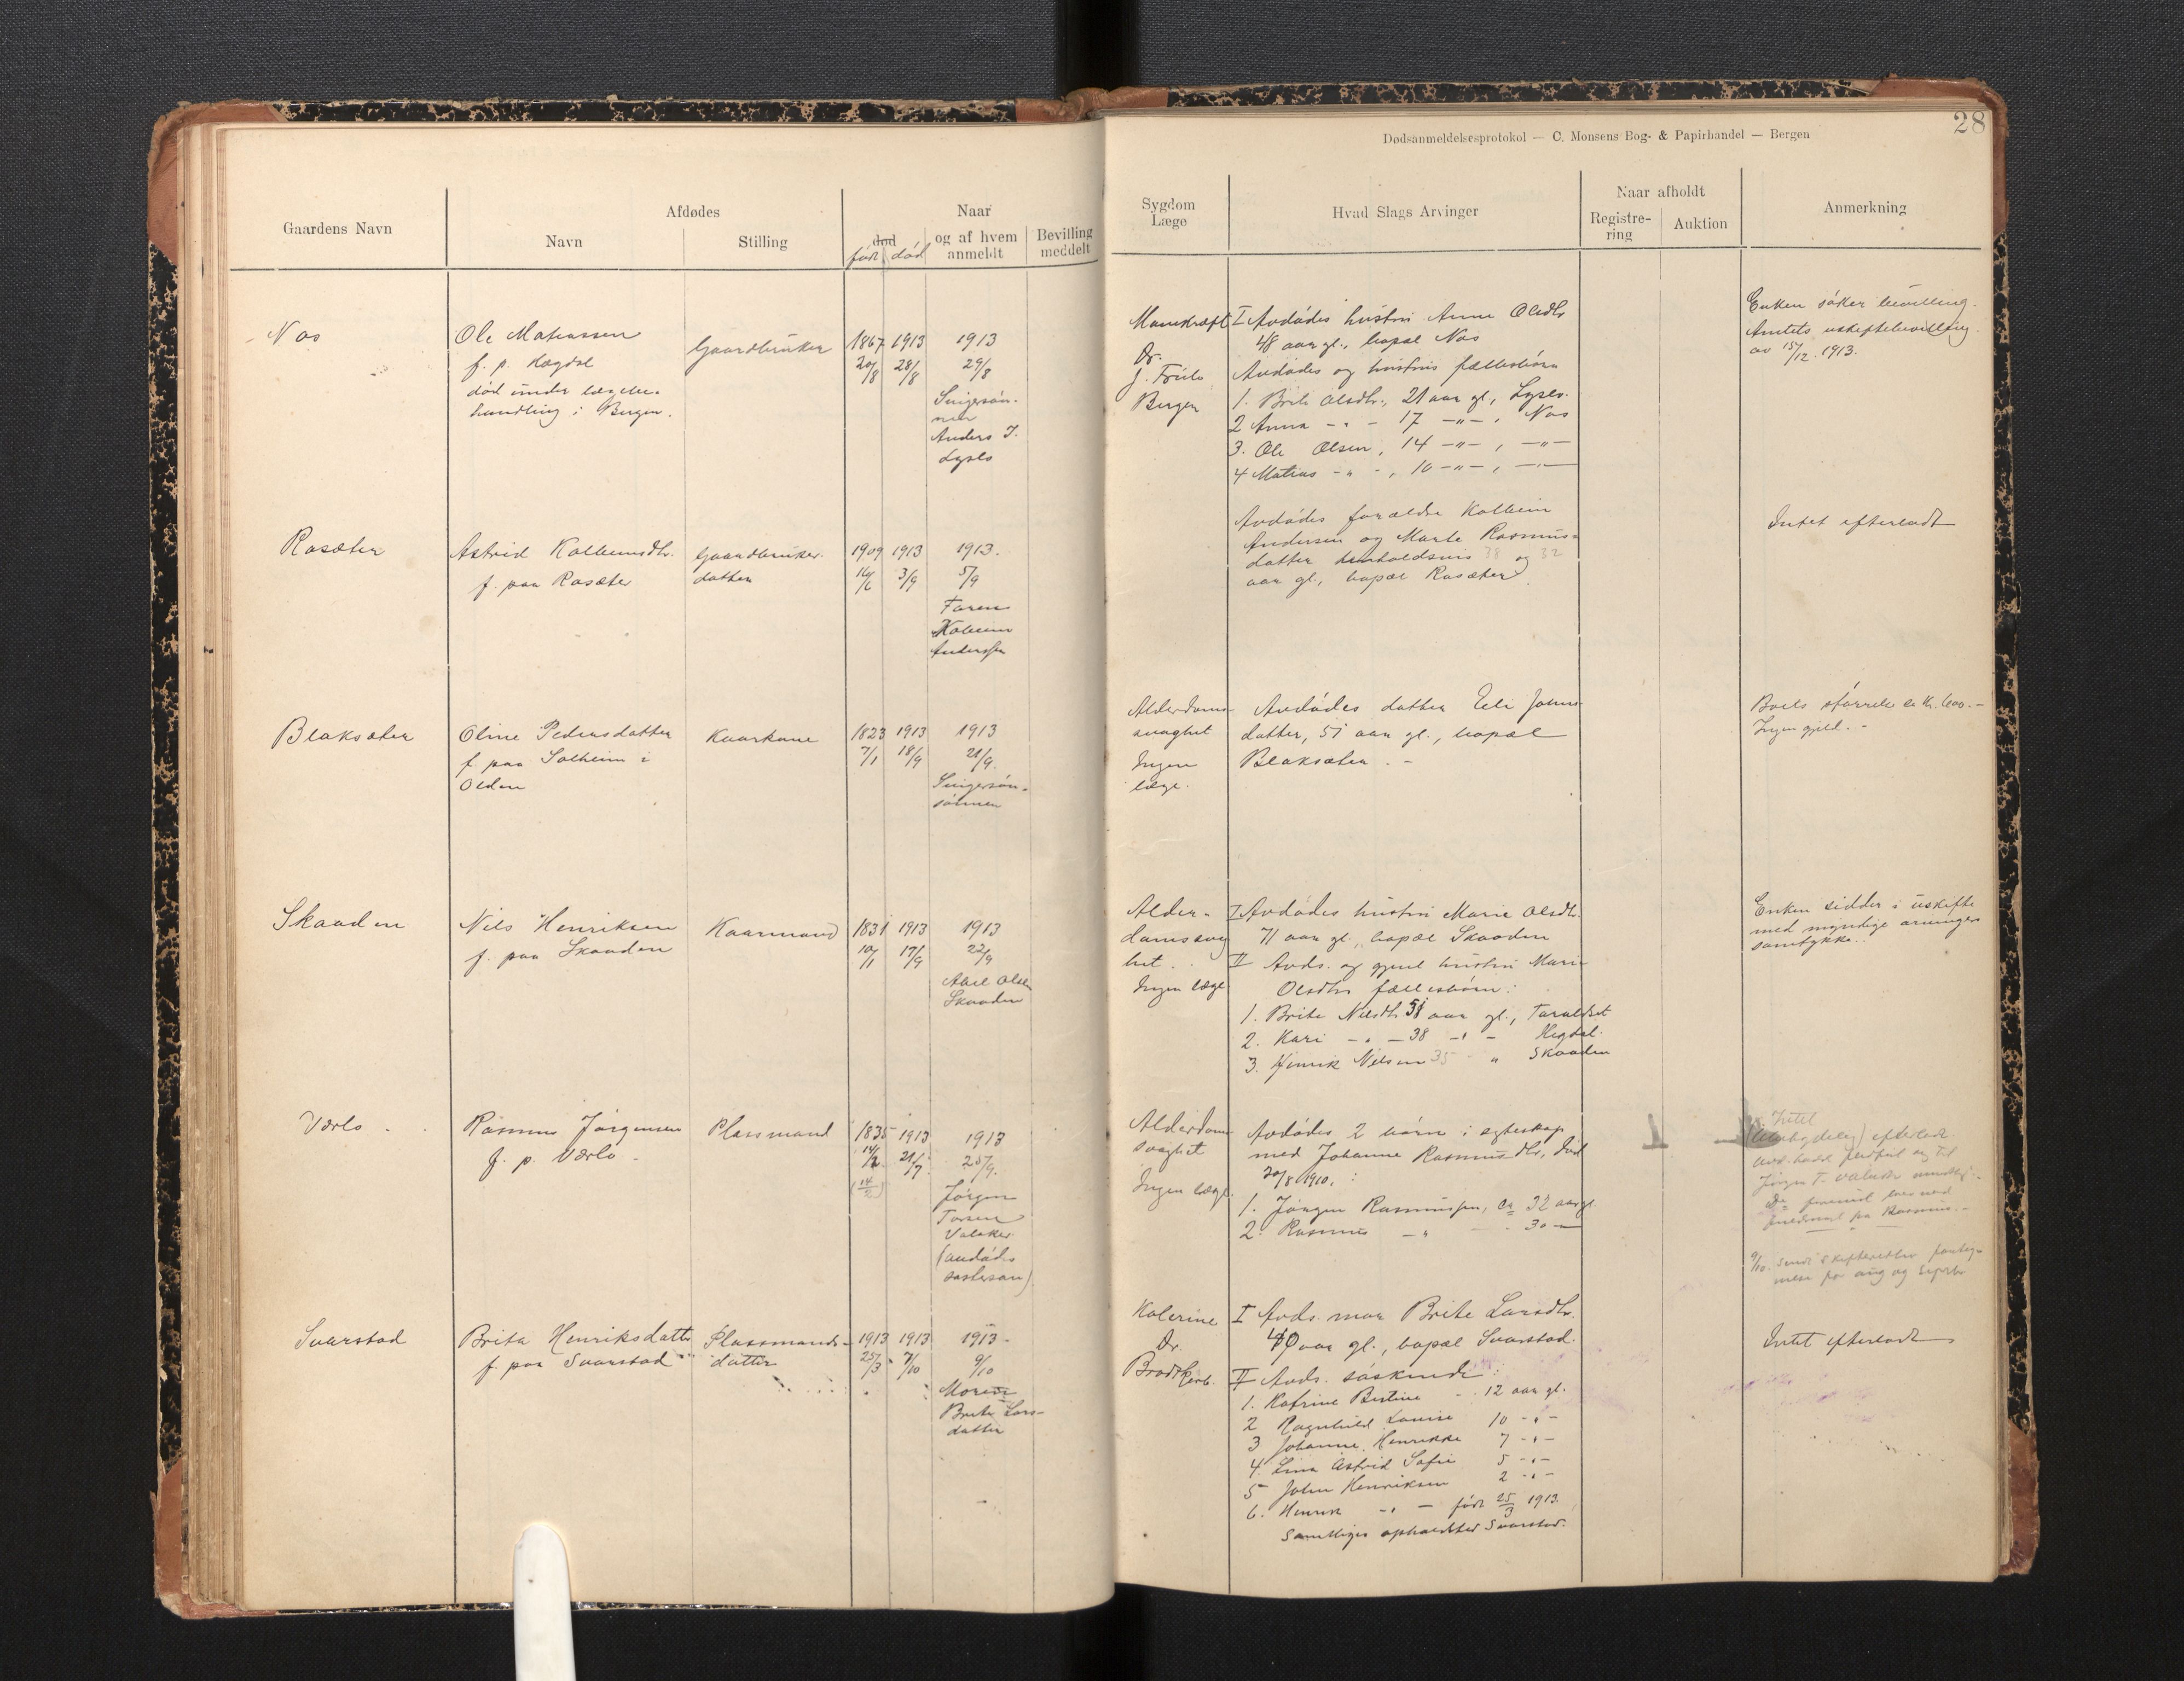 28
Dødsanmeldelsesprotokol — C. Monsens Bog- & Papirhandel — Bergen
Gaardens Navn
Afdødes
Navn
Stilling
Naar
død
født død
og af hvem
anmeldt
Bevilling
meddelt
Sygdom
Læge
Hvad Slags Arvinger
Naar afholdt
Registre-
ring
Auktion
Anmerkning
Nos
Ole Matiassen
f. p. Hægdal
død under lægebe-
handling i Bergen.
Gaardbruker
1867 1913 1913
20/8 28/8 29/8
Svigersøn-
nen
Anders J.
Dr.
Bergen
I Avdødes hustru Anne Olsdtr
48 aar gl., bopæl Nos
Avdødes og hustrus fællesbørn
1. Brite Olsdtr., 21 aar gl.,
2 Anna - " - 17 -"-, Nos
3. Ole Olsen, 14 -"-, -"-
4 Matias - " -, 10 -"-, -"-
Enken søker bevilling.
Amtets uskiftebevilling
av 15/12. 1913.
Rosæter
Astrid Kolbeinsdtr.
f. paa Rosæter
Gaardbruker-
datter
1909 1913 1913.
16/6 3/9 5/9
Faren
Kolbein
Anderssen
Avdødes forældre Kolbein
Andersen og Marte Rasmus-
datter henholdsvis 38 og 32
aar gl., bopæl Rosæter.
Intet efterladt
Blaksæter
Oline Pedersdatter
f. paa Solheim i
Olden
Kaarkone
1823 1913 1913
7/1 18/9 21/9.
Svigersøn-
sønnen
Alderdoms-
svaghet
Ingen
læge.
Avdødes datter Eli Johns-
datter, 51 aar gl., bopæl
Blaksæter. -
Boets størrelse ca kr. 600.-
Ingen gjeld. -
Skaaden
Nils Henriksen
f. paa Skaaden
Kaarmand
1831 1913 1913
10/1 17/9 22/9
Abel Olsen
Skaaden
Alder-
domssvag
het.
Ingen læge
I Avdødes hustru Marie Olsdtr.
71 aar gl., bopæl Skaaden
II Avds. og gjenl. hustru Marie
Olsdtrs fællesbørn:
1. Brite Nilsdtr. aar gl., Taraldset
2. Kari - " - 38 -"- Hegdal.
3. Henrik Nilsen 35 " Skaaden
Enken sidder i uskifte
med myndige arvingers
samtykke.
Værlo
Rasmus Jørgensen
f. p. Værlo
Plassmand
1835 1913 1913
14/2 21/9 25/9.
(14/2)
Jørgen
Tomsen
Valaker
(avdødes
søstersøn)
Alderdoms
svaghet
Ingen læge.
Avdødes 2 børn i egteskap
med Johanne Rasmusdtr, død
20/8 1910. :
1. Jørgen Rasmussen, ca 32 aar gl.
2. Rasmus - " - 30 -
Intet
efterladt
9/10. sendt skifteretten
for aug og septbr
Svarstad
Brita Henriksdatter
f. paa Svarstad
Plassmands-
datter
1913 1913 1913
25/3 7/10 9/10
Moren
Brite Lars-
datter
Kolerine
Dr.
Brodtkorb.
I Avds. mor Brite Larsdtr.
40 aar gl., bopæl Svarstad.
II Avds. søskende:
1. Katrine Bertine 12 aar gl.
2 Ragnhild Lovise 10 -"-
3 Johanne Henrikke 7 -"-
4. Lina Astrid Sofie 5 -"-
5 John Henriksen 2 -"-
6. Henrik -"- født 25/3 1913.
Samtliges opholdsted Svarstad.
Intet efterladt